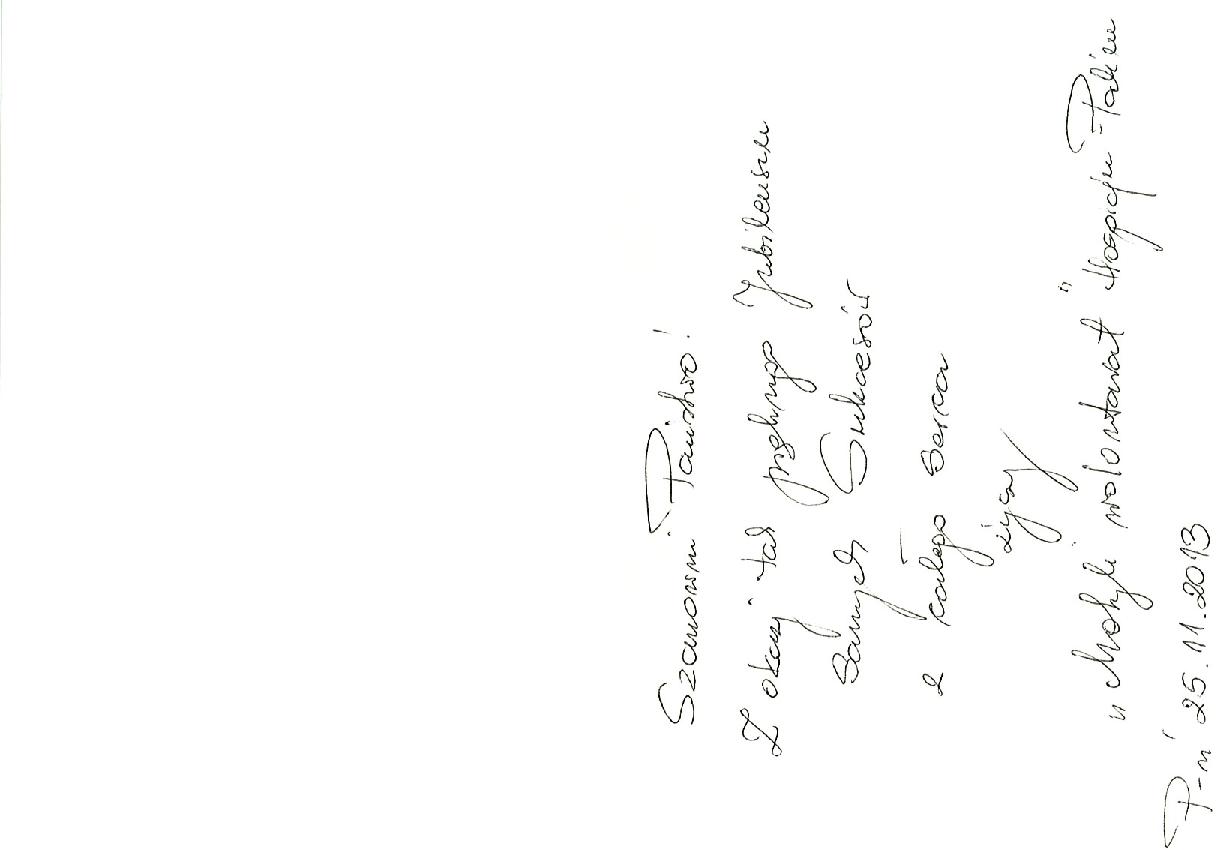 Szanowni Państwo!
Z okazji tak pięknego Jubileuszu
Samych Sukcesów
z całego serca
życzy
"Motyli wolontariat" Hospicjum Palium
P-ń 25.11.2013